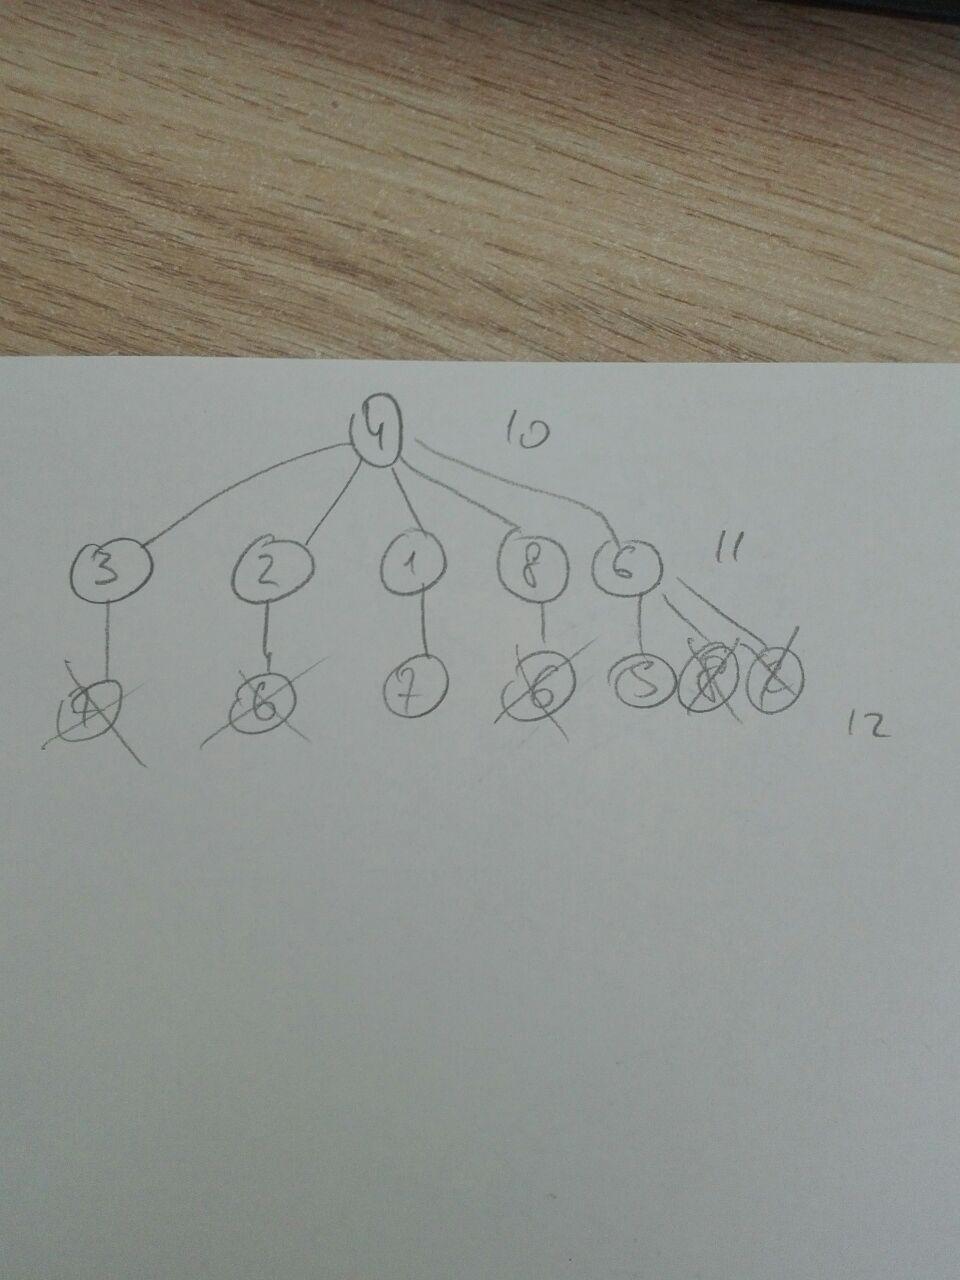 4 10
3 2 1 8 6 11
6 7 6 5 8 2
12